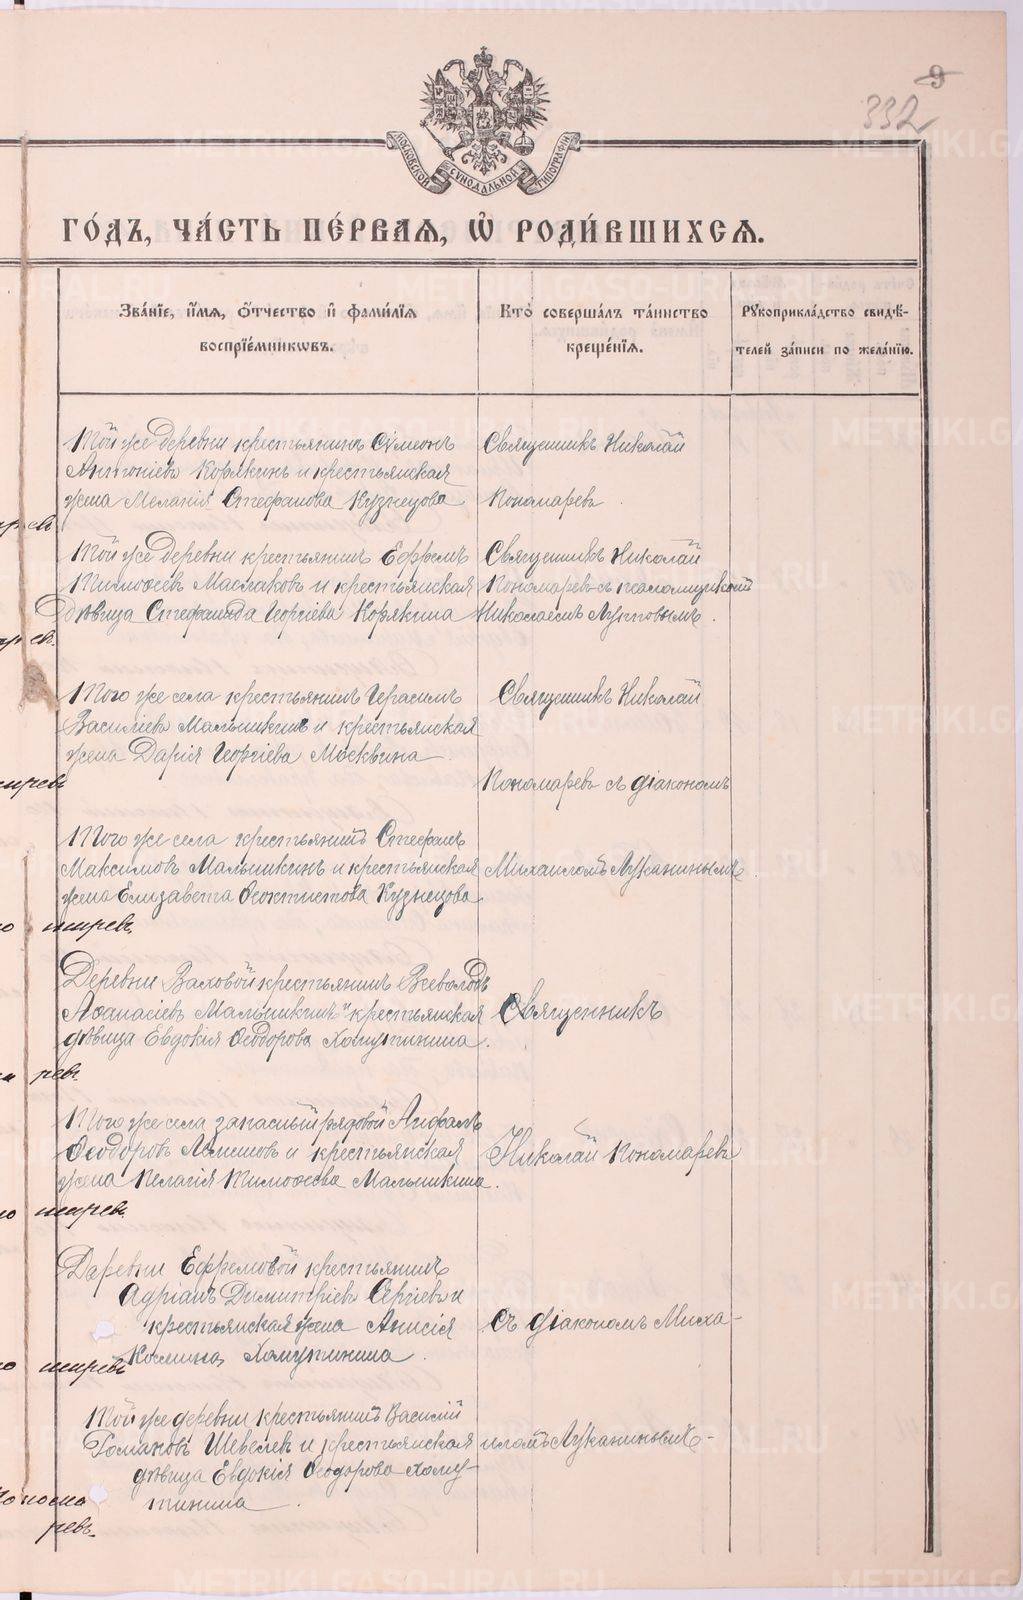 9
332
МОСКОВСКОЙ СѴНОДАЛЬНОЙ ТИПОГРАФІИ
ГО́ДЪ, ЧА́СТЬ ПЕ́РВАѦ, Ѡ҆ РОДИ́ВШИХСѦ.
Зва́нїе, и҆́мѧ, ѻ҆́тчество и҆ фами́лїѧ
воспрїе́мникѡвъ.
Кто̀ соверша́лъ та́инство
креще́нїѧ.
Рꙋкоприкла́дство свидѣ́-
телей за́писи по жела́нїю.
Той же деревни крестьянинъ Сѵмеонъ
Антоніевъ Корякинъ и крестьянская
жена Меланія Стефанова Кузнецова
Священникъ Николай
Пономаревъ
Той же деревни крестьянинъ Ефремъ
Тимоѳеевъ Маслаковъ и крестьянская
дѣвица Стефанида Георгіева Корякина
Священникъ Николай
Пономаревъ съ псаломщикомъ
Николаемъ Луптовымъ.
Того же села крестьянинъ Герасимъ
Василіевъ Малышкинъ и крестьянская
жена Дарія Георгіева Москвина
Священникъ Николай
Пономаревъ съ діакономъ
Того же села крестьянинъ Стефанъ
Максимовъ Малышкинъ и крестьянская
жена Елизавета Ѳеоктистова Кузнецова
Михаиломъ Луканинымъ
Деревни Ваховой крестьянинъ Всеволодъ
Аѳанасіевъ Малышкинъ и крестьянская
дѣвица Евдокія Ѳеодорова Хомутинина.
Священникъ
Того же села запасный рядовой Анфалъ
Ѳеодоровъ и крестьянская
жена Пелагія Тимоѳеева Малышкина.
Николай Пономаревъ
Деревни Ефремовой крестьянинъ
Адріанъ Димитріевъ Сергѣевъ и
крестьянская жена Анисія
Космина Хомутинина.
съ діакономъ Миха-
Той же деревни крестьянинъ Василій
Романовъ Шевелевъ и крестьянская
дѣвица Евдокія Ѳеодорова Хому-
тинина.
иломъ Луканинымъ-
METRIKI.GASO-URAL.RU